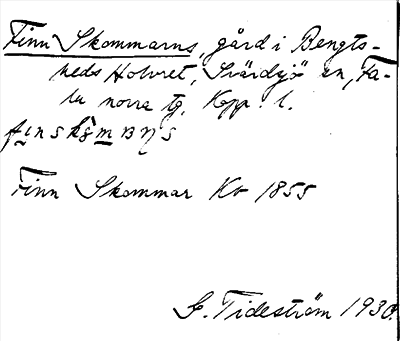 Finn Skommarns, gård i Bengts-
heds Holvret, Svärdsjö sn, Fa-
lu norra tg, Kopp. l.
Finn Skommar Kb 1855
G. Tideström 1930.